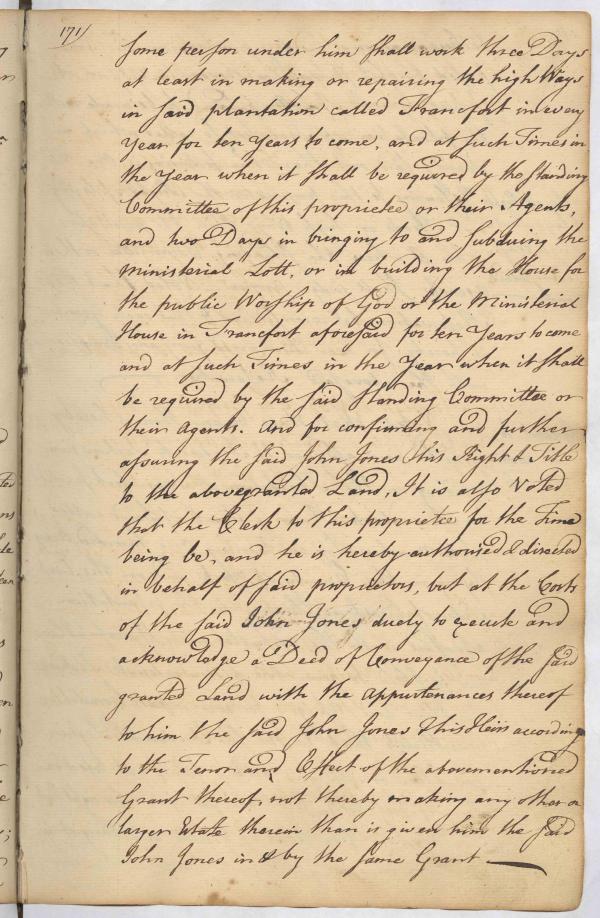 171
some person under him shall work three Days
at least in making or repairing the high Ways
in said plantation called Francfort in every
Year for ten Years to come, and at such Times in
the Year when it shall be required by the Standing
Committee of this proprietee or their Agents,
and two Days in bringing to and subduing the
ministerial Lott, or in building the House for
the public Worship of God or the Ministerial
House in Francfort aforesaid for ten Years to come
and at such Times in the Year when it shall
be required by the said Standing Committee or
their Agents. And for confirming and further
assuring the said John Jones his Right & Title
to the abovegranted Land, It is also Voted
that the Clerk to this proprietee for the Time
being be, and he is hereby authorised & directed
in behalf of said proprietors, but at the Costs
of the said John Jones duely to execute and
acknowledge a Deed of Conveyance of the said
granted Land with the appurtenances thereof
to him the said John Jones & his Heirs according
to the Tenor and Effect of the abovementioned
Grant thereof, not thereby making any other or
larger Estate therein than is given him the said
John Jones in & by the same Grant —